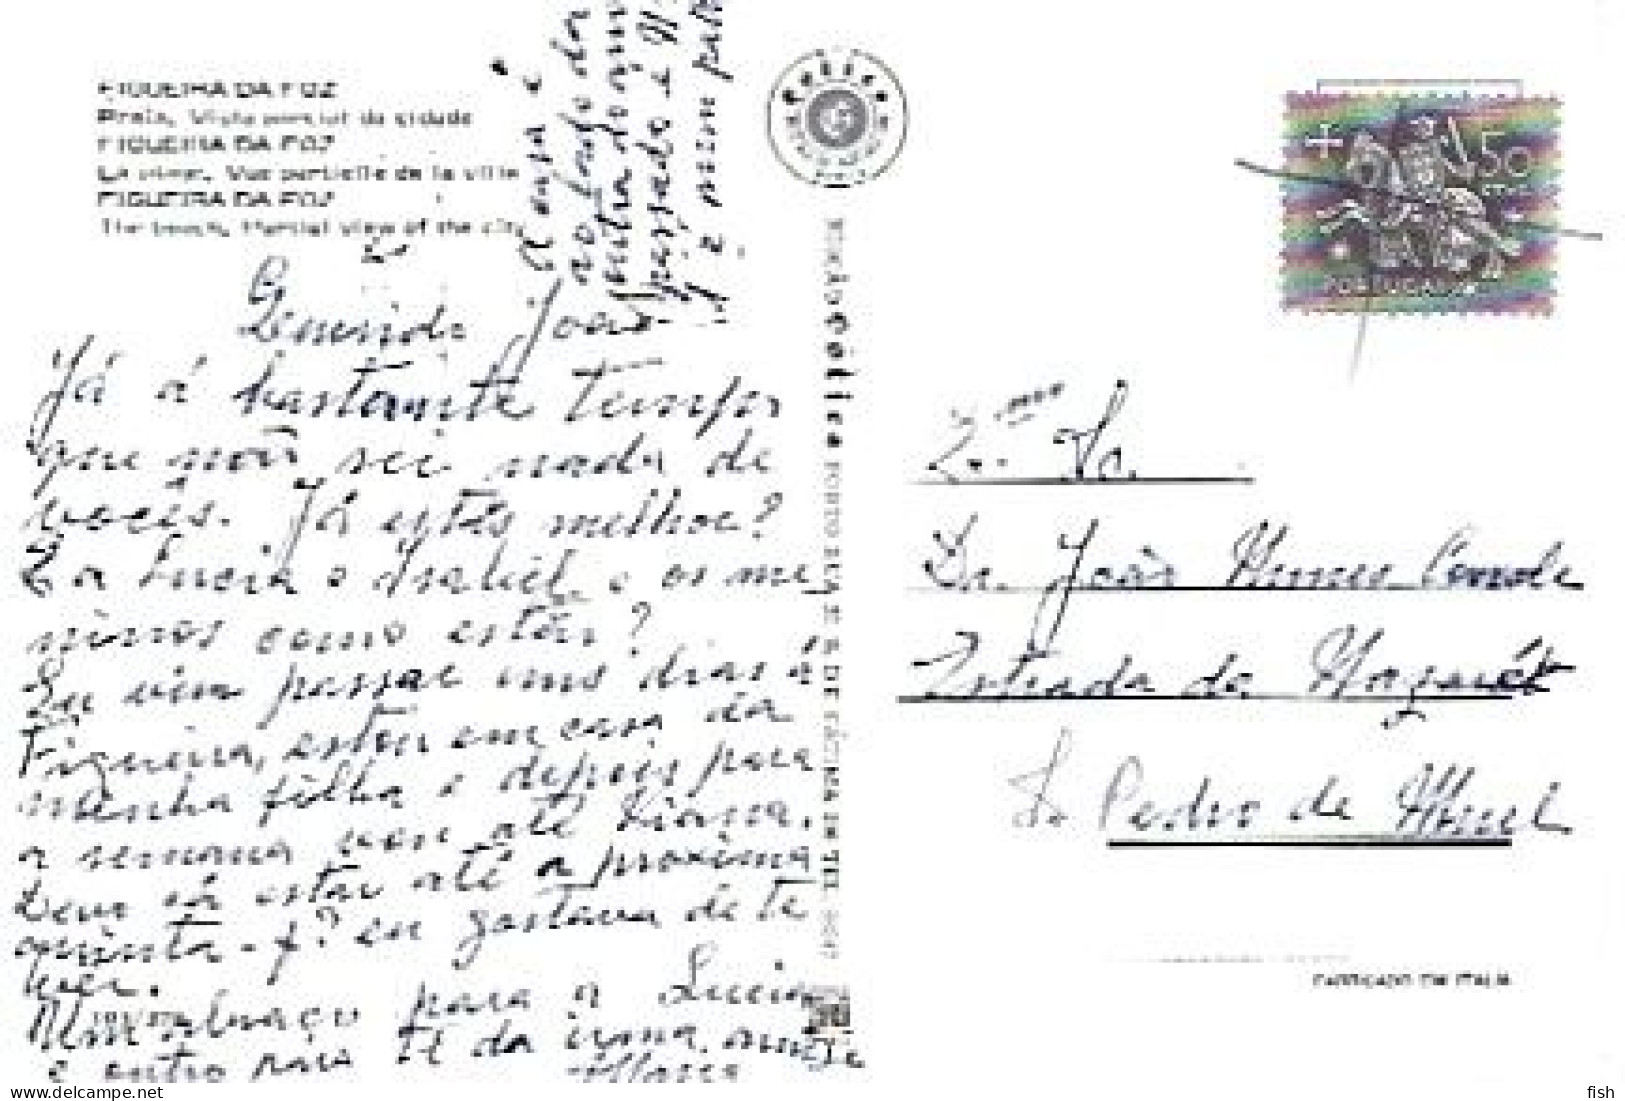 FIGUEIRA DA FOZ
Praia. Vista parcial da cidade
FIGUEIRA DA FOZ
La plage. Vue partielle de la ville
FIGUEIRA DA FOZ
The beach. Partial view of the city
A casa é
ao lado da
outra do ano
passado e
nem
Querido João
Já á bastante tempo
que não sei nada de
vocês. Já estás melhor?
E a Lucia e Isabel e os me
ninos como estão?
Eu vim passar uns dias á
Figueira, estou em casa da
minha filha e depois para
a semana vou até Viana.
Devo cá estar até a proxima
quinta-fª eu gostava de te
ver.
Um abraço para a Lucia
e outro para ti da irmã amiga
Maria
PORTO
50
PORTUGAL
Dr. João
Estrada da Nazaret
S. Pedro de Mouel
FABRICADO EM ITALIA
fish